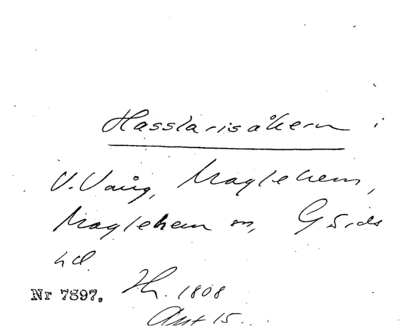 Hasslarisåkern i
V. Vång, Maglehem,
Maglehem sn, Gärds
hd.
Nr 7897. Hr. 1808
Akt 15.